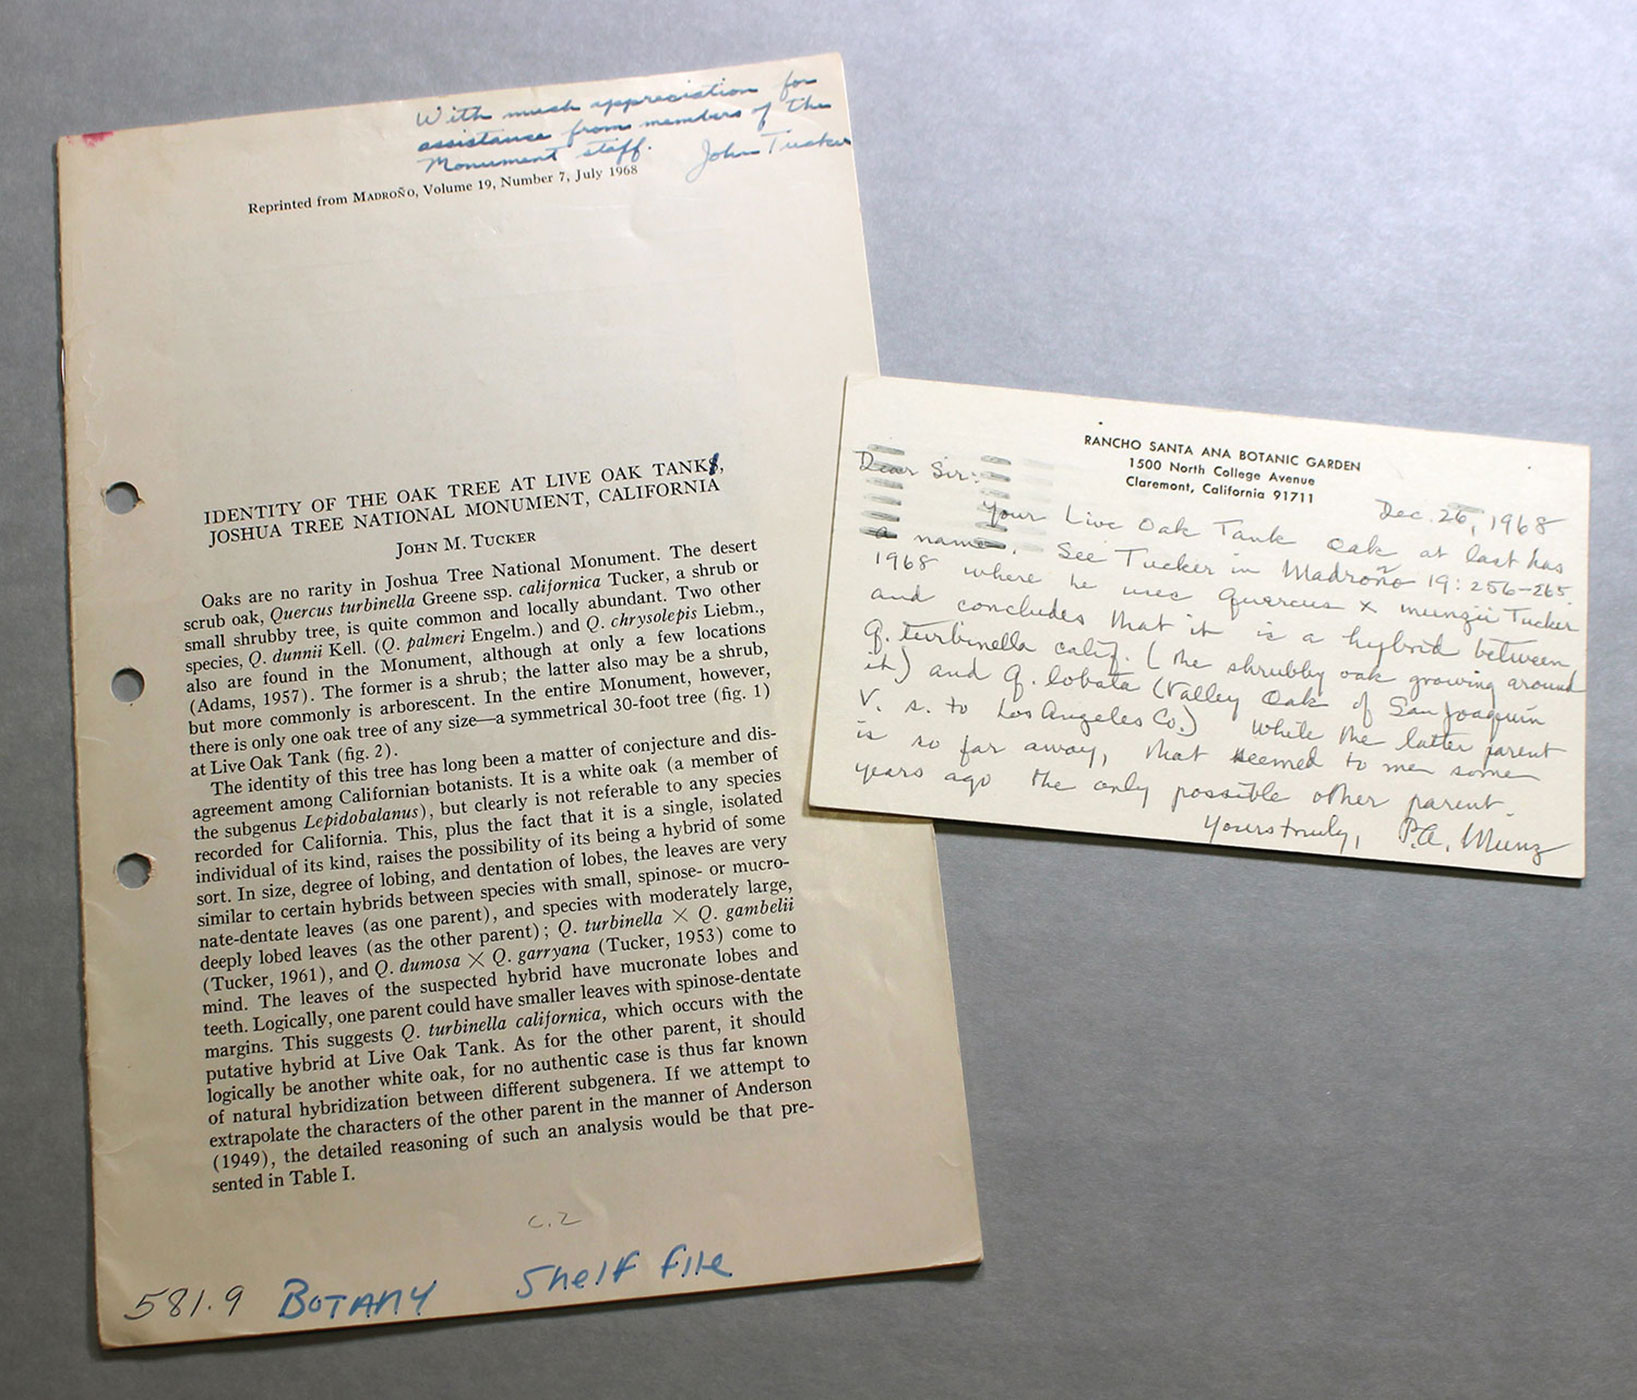 With much appreciation for
assistance from members of the
Monument staff. John Tucker
Reprinted from MADROÑO, Volume 19, Number 7, July 1968
IDENTITY OF THE OAK TREE AT LIVE OAK TANKS,
JOSHUA TREE NATIONAL MONUMENT, CALIFORNIA
JOHN M. TUCKER
Oaks are no rarity in Joshua Tree National Monument. The desert
scrub oak, Quercus turbinella Greene ssp. californica Tucker, a shrub or
small shrubby tree, is quite common and locally abundant. Two other
species, Q. dunnii Kell. (Q. palmeri Engelm.) and Q. chrysolepis Liebm.,
also are found in the Monument, although at only a few locations
(Adams, 1957). The former is a shrub; the latter also may be a shrub,
but more commonly is arborescent. In the entire Monument, however,
there is only one oak tree of any size—a symmetrical 30-foot tree (fig. 1)
at Live Oak Tank (fig. 2).
The identity of this tree has long been a matter of conjecture and dis-
agreement among Californian botanists. It is a white oak (a member of
the subgenus Lepidobalanus), but clearly is not referable to any species
recorded for California. This, plus the fact that it is a single, isolated
individual of its kind, raises the possibility of its being a hybrid of some
sort. In size, degree of lobing, and dentation of lobes, the leaves are very
similar to certain hybrids between species with small, spinose- or mucro-
nate-dentate leaves (as one parent), and species with moderately large,
deeply lobed leaves (as the other parent); Q. turbinella × Q. gambelii
(Tucker, 1961), and Q. dumosa × Q. garryana (Tucker, 1953) come to
mind. The leaves of the suspected hybrid have mucronate lobes and
teeth. Logically, one parent could have smaller leaves with spinose-dentate
margins. This suggests Q. turbinella californica, which occurs with the
putative hybrid at Live Oak Tank. As for the other parent, it should
logically be another white oak, for no authentic case is thus far known
of natural hybridization between different subgenera. If we attempt to
extrapolate the characters of the other parent in the manner of Anderson
(1949), the detailed reasoning of such an analysis would be that pre-
sented in Table I.
c.2
581.9 BOTANY Shelf File
RANCHO SANTA ANA BOTANIC GARDEN
1500 North College Avenue
Claremont, California 91711
Dec. 26, 1968
Dear Sir:
Your Live Oak Tank Oak at last has
a name. See Tucker in Madroño 19: 256-265.
1968 where he uses Quercus x munzii Tucker
and concludes that it is a hybrid between
Q. turbinella calif. (the shrubby oak growing around
it) and Q. lobata (Valley Oak of San Joaquin
V. s. to Los Angeles Co.) While the latter parent
is so far away, that seemed to me some
years ago the only possible other parent.
Yours truly, P.A. Munz